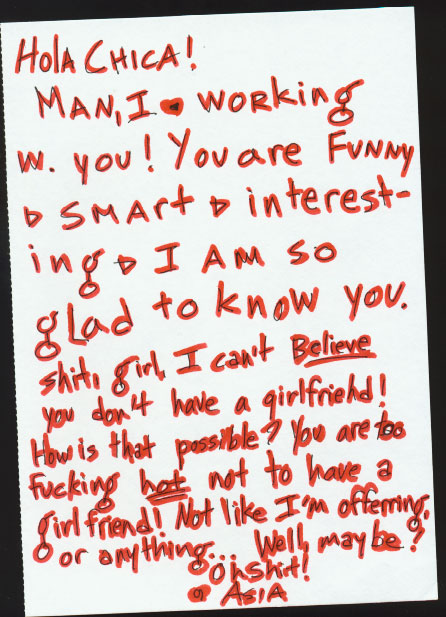 HolA CHICA!
MAN, I ♥ working
w. you! You are FUNNY
& SMArt & interest-
ing & I AM so
glad to know you.
shit, girl, I can't Believe
you don't have a girlfriend!
How is that possible? You are too
fucking hot not to have a
girlfriend! Not like I'm offerring,
or anything... Well, maybe?
Oh shit!
ASIA